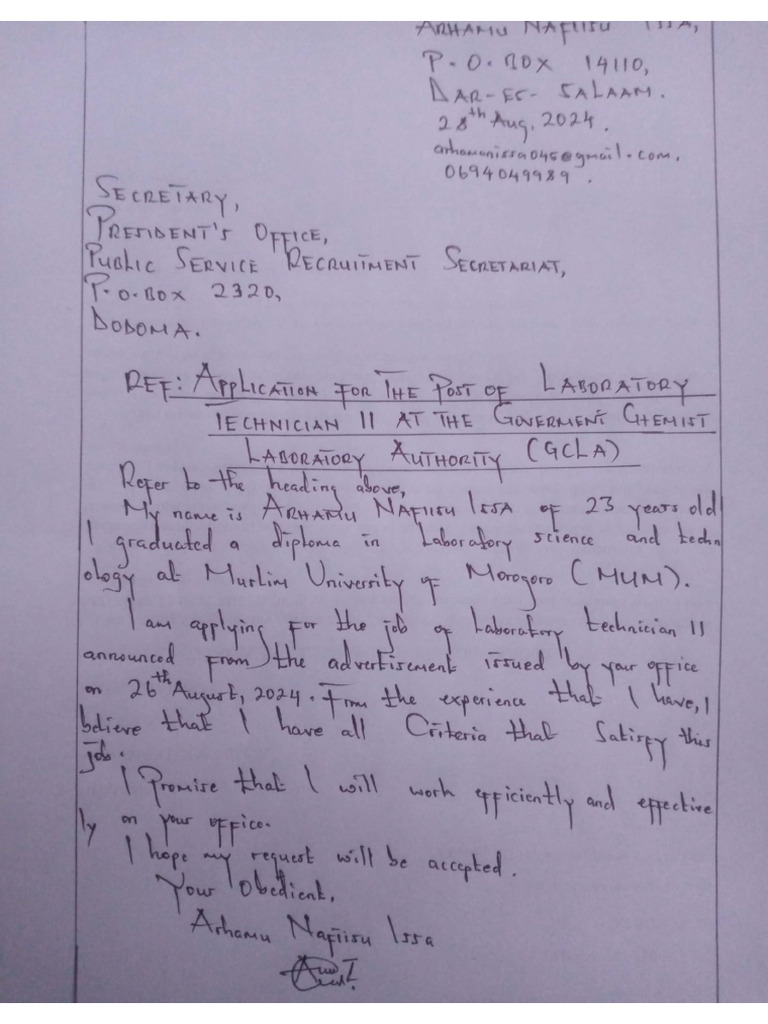 ARHAMU NAFIISU ISSA,
P.O.BOX 14110,
DAR-ES-SALAAM.
28th Aug, 2024.
arhamunissa045@gmail.com,
0694049989.
SECRETARY,
PRESIDENT'S OFFICE,
PUBLIC SERVICE RECRUITMENT SECRETARIAT,
P.O.BOX 2320,
DODOMA.
REF: APPLICATION FOR THE POST OF LABORATORY
TECHNICIAN II AT THE GOVERMENT CHEMIST
LABORATORY AUTHORITY (GCLA)
Refer to the heading above,
My name is ARHAMU NAFIISU ISSA of 23 years old
I graduated a diploma in Laboratory science and techn
ology at Muslim University of Morogoro (MUM).
I am applying for the job of Laboratory technician II
announced from the advertisement issued by your office
on 26th August, 2024. From the experience that I have, I
believe that I have all Criteria that Satisfy this
job.
I Promise that I will work efficiently and effective
ly on your office.
I hope my request will be accepted.
Your Obedient,
Arhamu Nafiisu Issa